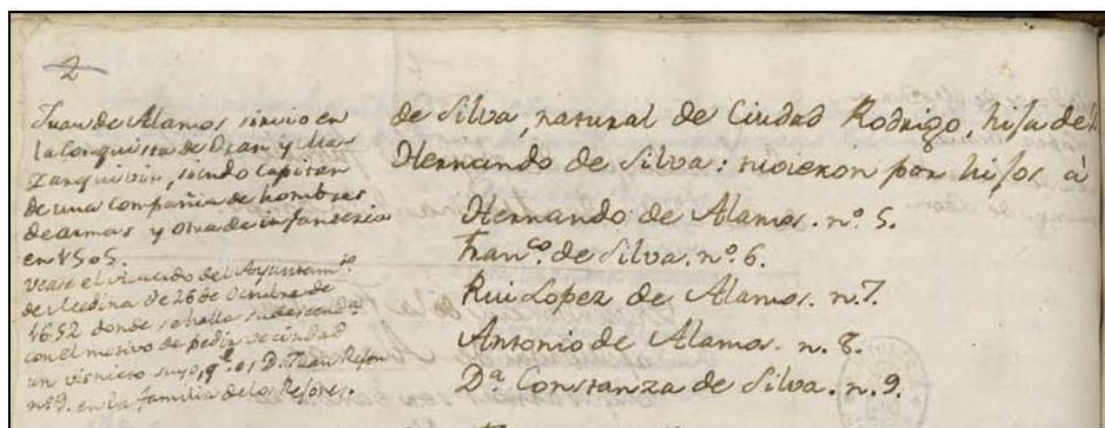 2
Juan de Alamos sirvio en
la Conquista de Oran y Ma-
zarquivir, siendo Capitan
de una Compañia de hombres
de armas y otra de infanteria
en 1505.
vease el Acuerdo del Ayuntam.to
de Medina de 26 de Octubre de
1652 donde se halla su descend.a
con el motivo de pedir vecindad
un visnieto suyo, q.e es D. Juan Rejon
nº 9. en la familia de los Rejones.
de Silva, natural de Ciudad Rodrigo, hija de
Hernando de Silva: tuvieron por hijos à
Hernando de Alamos. nº. 5.
Fran.co de Silva. nº. 6.
Rui Lopez de Alamos. n. 7.
Antonio de Alamos. n. 8.
D.a Constanza de Silva. n. 9.